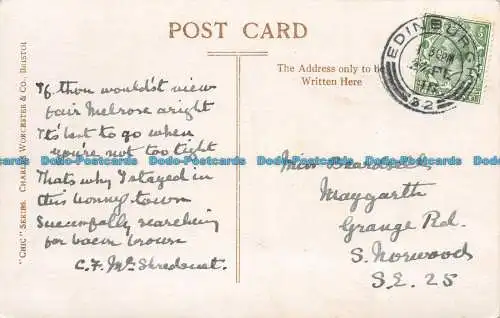 POST CARD
The Address only to be
Written Here
EDINBURGH
"CHIC" SERIES. CHARLES WORCESTER & CO., BRISTOL
If thou wouldst view
fair Melrose aright
It's best to go when
you're not too tight
Thats why I stayed in
this bonny town
Successfully searching
for
C. F.
Miss
Maygarth
Grange Rd.
S. Norwood
S.E. 25
Dodo-Postcards Dodo-Postcards Dodo-Postcards Dodo-Postcards